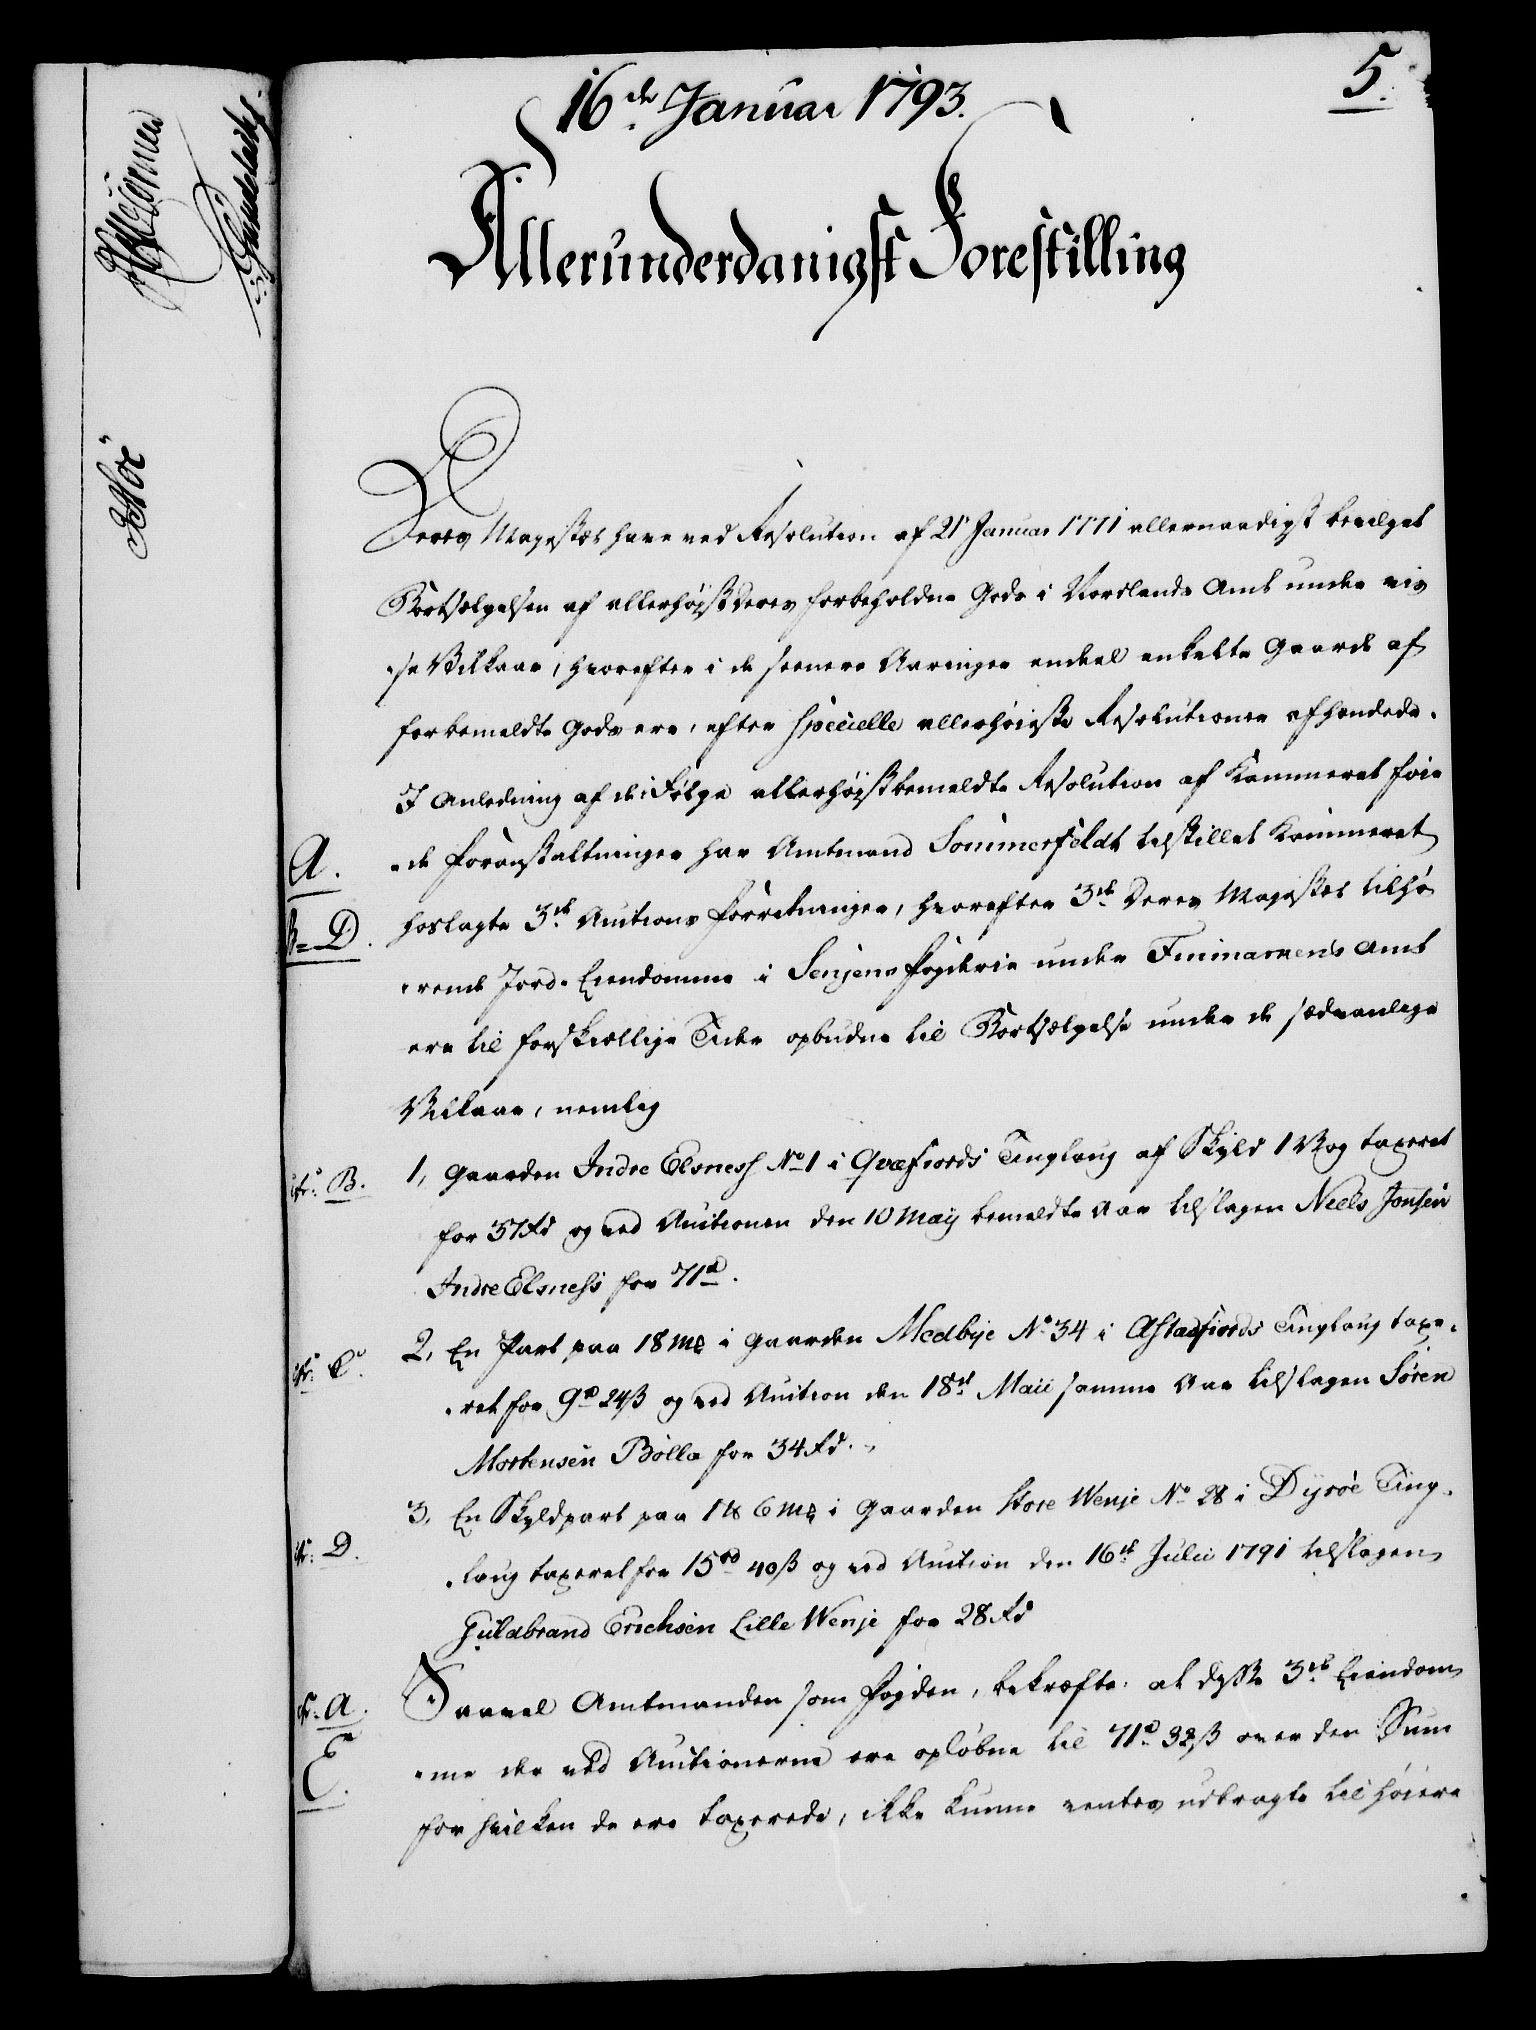 16de Januar 1793.
5.
Allerunderdanigst Forestilling
Deres Majestet have ved Resolution af 21 Januar 1771 allernaadigst bevilget
Bortsælgelsen af allerhøjst Deres forbeholdne Gods i Nordlands Amt under vis
se Vilkaar, hvorefter i de seenere Aaringer endeel enkelte Gaarde af
forbemeldte Gods ere, efter specielle allerhøieste Resolutioner afhændede.
I Anledning af de i Følge allerhøjstbemeldte Resolution af Kammeret føie
A.
de Foranstaltninger har Amtmand Sommerfeldt tilstillet Kammeret
B=D.
hoslagte 3de Auctions Forretninger, hvorefter 3de Deres Majestet tilhø
rende Jord-Eiendomme i Senjens Fogderie under Finmarkens Amt
ere til forskiællige Tider opbudne til Bortsælgelse under de sædvanlige
Vilkaar, nemlig
Lit: B.
1, Gaarden Indre Elsness No 1 i Qvæfiords Tinglaug af Skyld 1 Vog taxeret
for 37 Rd og ved Auctionen den 10 Maij bemeldte Aar tilslagen Neels Jonsen
Indre Elsness for 71 rd.
Lit: C.
2, En Part paa 18 mg i Gaarden Medbye No 34 i Astafiords Tinglaug taxe
ret for 9 rd 24 ß og ved Auction den 18de Maii samme Aar tilslagen Søren
Mortensen Bølla for 34 Rd.
3, En Skyldpart paa 1 ℔ 6 mg i Gaarden Store Wenje No 28 i Dyrøe Ting-
Lit: D.
laug taxeret for 15 rd 40 ß og ved Auction den 16de Julii 1791 tilslagen
Guldbrand Erichsen Lille Wenje for 28 Rd
Lit: A.
Saavel Amtmanden som Fogden, bekræfte: at disse 3de Eiendom
E.
me der ved Auctionerne ere opløbne til 71 rd 32 ß over den Sum
for hvilken de ere taxerede, ikke kunne ventes udbragte til høiere